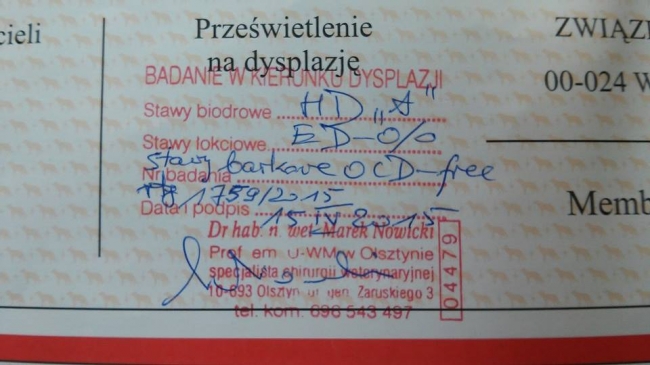 cieli
Prześwietlenie
na dysplazję
ZWIĄZ
00-024 W
BADANIE W KIERUNKU DYSPLAZJI
Stawy biodrowe HD "A"
Stawy łokciowe ED-0/0
stawy barkowe OCD-free
Nr badania
rtg 1759/2015
Data i podpis 15 IV 2015
Memb
Dr hab. n. wet. Marek Nowicki
Prof. em. U-WM w Olsztynie
specjalista chirurgii weterynaryjnej
10-693 Olsztyn ul. gen. Zaruskiego 3
tel. kom. 696 543 497
04479